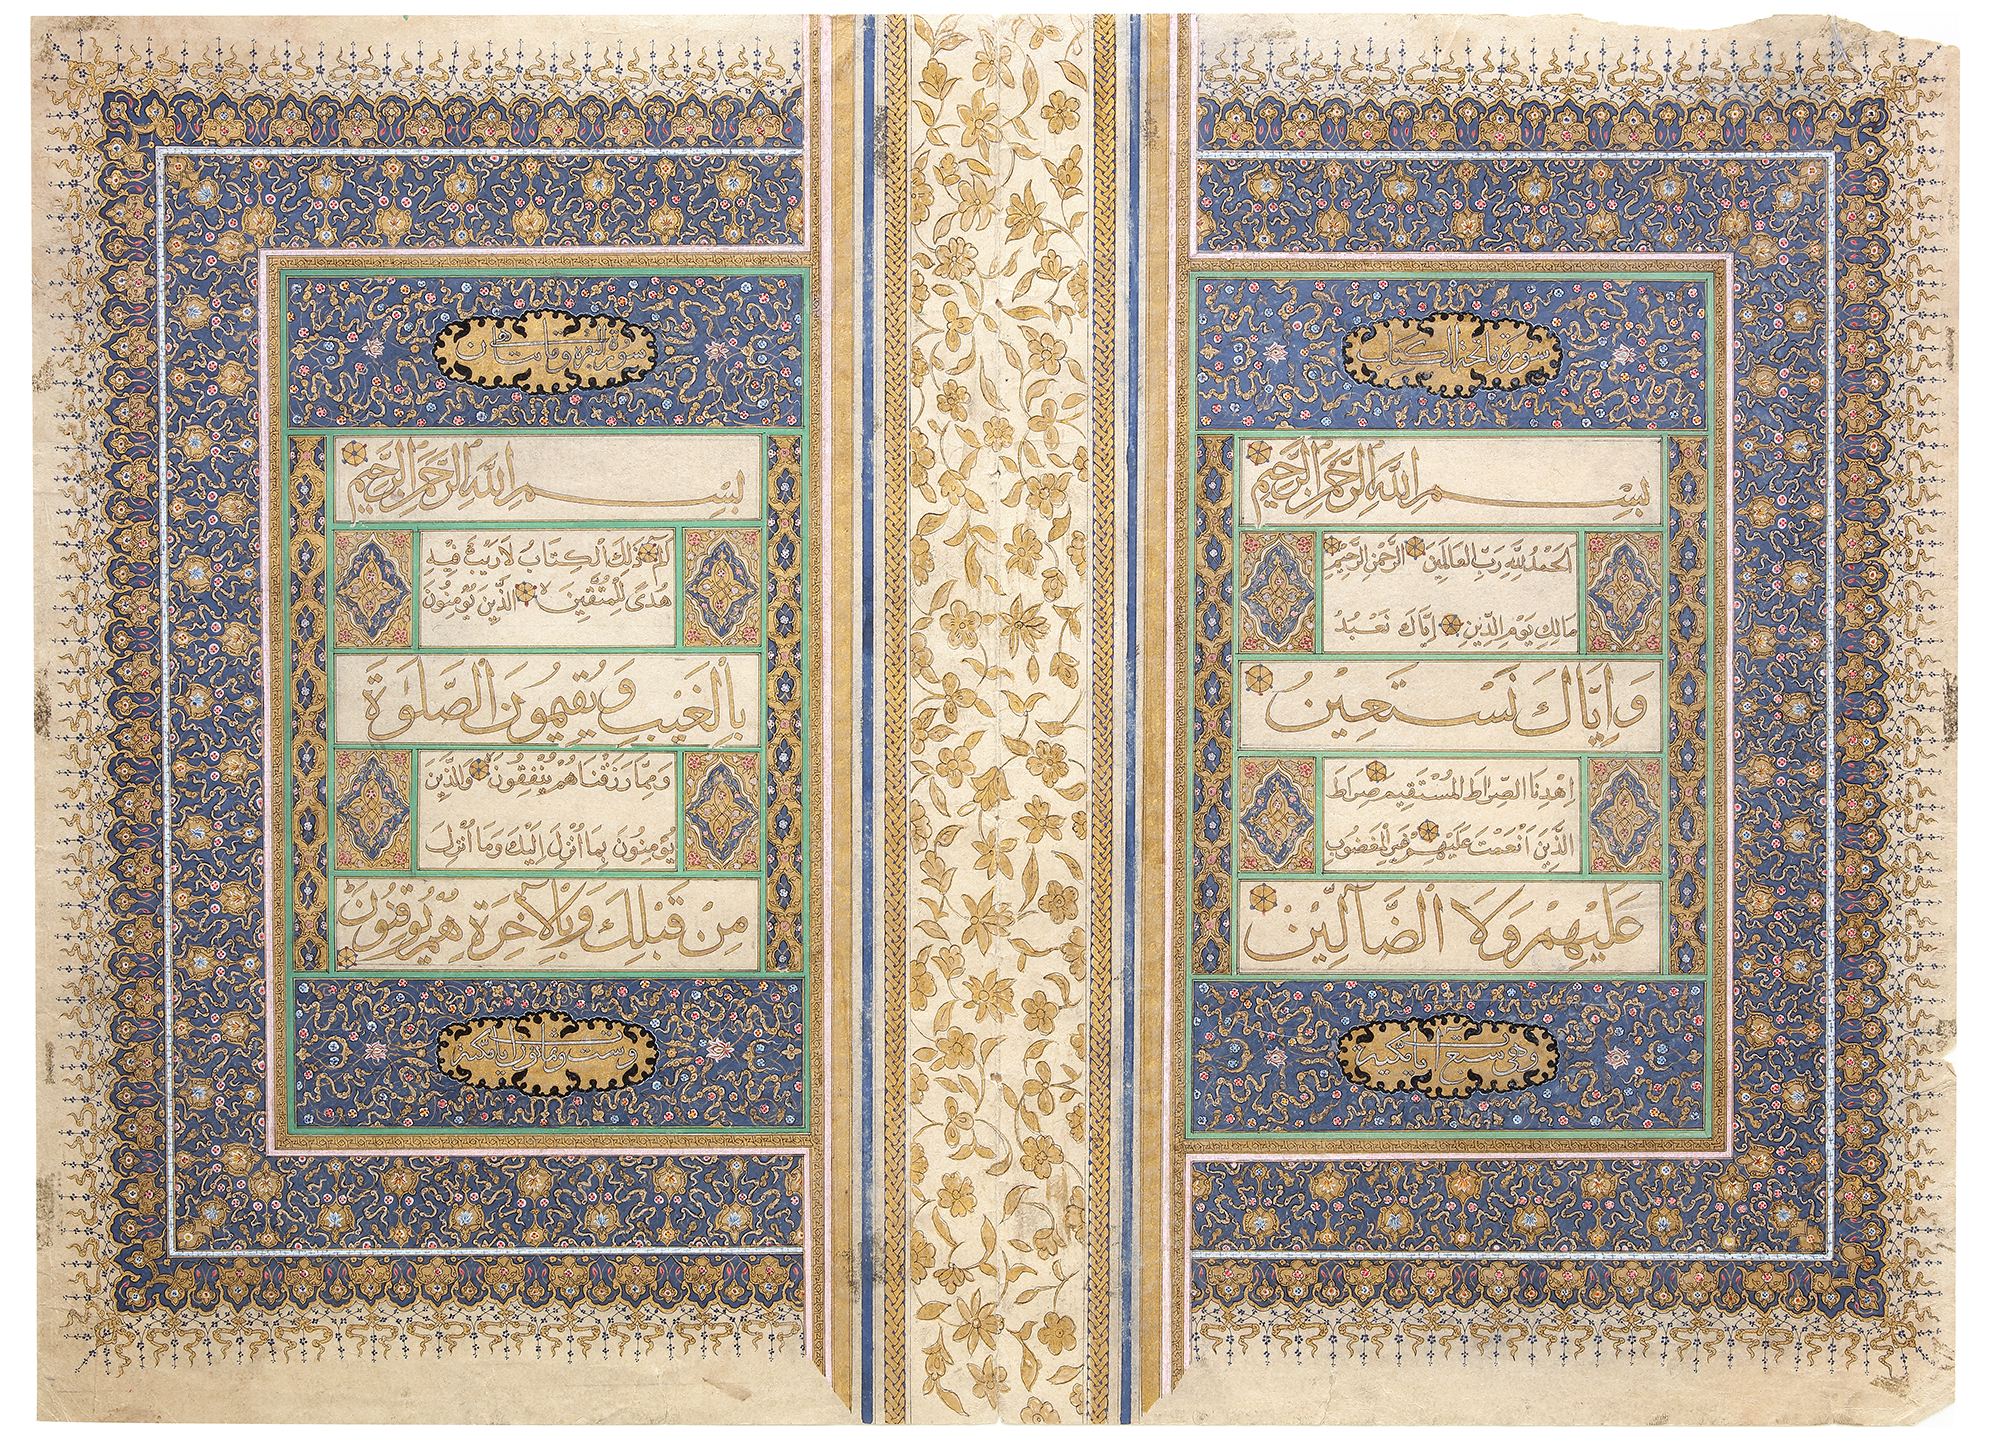 سُورة فاتحة الكتاب
بِسْمِ اللهِ الرَّحْمٰنِ الرَّحِيمِ
اَلْحَمْدُ لِلّٰهِ رَبِّ الْعَالَمِينَ الرَّحْمٰنِ الرَّحِيمِ
مَالِكِ يَوْمِ الدِّينِ اِيَّاكَ نَعْبُدُ
وَاِيَّاكَ نَسْتَعِينُ
اِهْدِنَا الصِّرَاطَ الْمُسْتَقِيمَ صِرَاطَ
الَّذِينَ اَنْعَمْتَ عَلَيْهِمْ غَيْرِ الْمَغْضُوبِ
عَلَيْهِمْ وَلَا الضَّآلِّينَ
وهي سبع آيات مكية
سورة البقرة ومايتان
بِسْمِ اللهِ الرَّحْمٰنِ الرَّحِيمِ
الٓمٓ ذٰلِكَ الْكِتَابُ لَا رَيْبَ فِيهِ
هُدًى لِلْمُتَّقِينَ الَّذِينَ يُؤْمِنُونَ
بِالْغَيْبِ وَيُقِيمُونَ الصَّلٰوةَ
وَمِمَّا رَزَقْنَاهُمْ يُنْفِقُونَ وَالَّذِينَ
يُؤْمِنُونَ بِمَا اُنْزِلَ اِلَيْكَ وَمَا اُنْزِلَ
مِنْ قَبْلِكَ وَبِالْآخِرَةِ هُمْ يُوقِنُونَ
وست وثمانون آيات